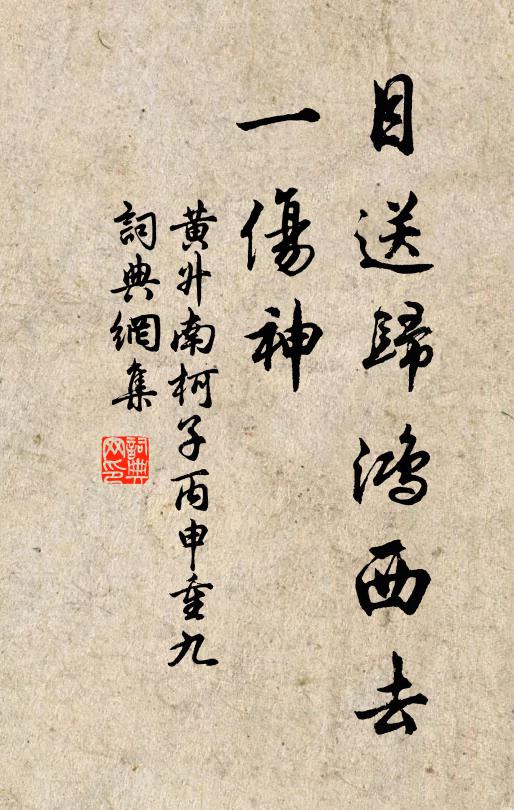 目送歸鴻西去
一傷神
黄升南柯子丙申重九
詞典網集
詞典網印